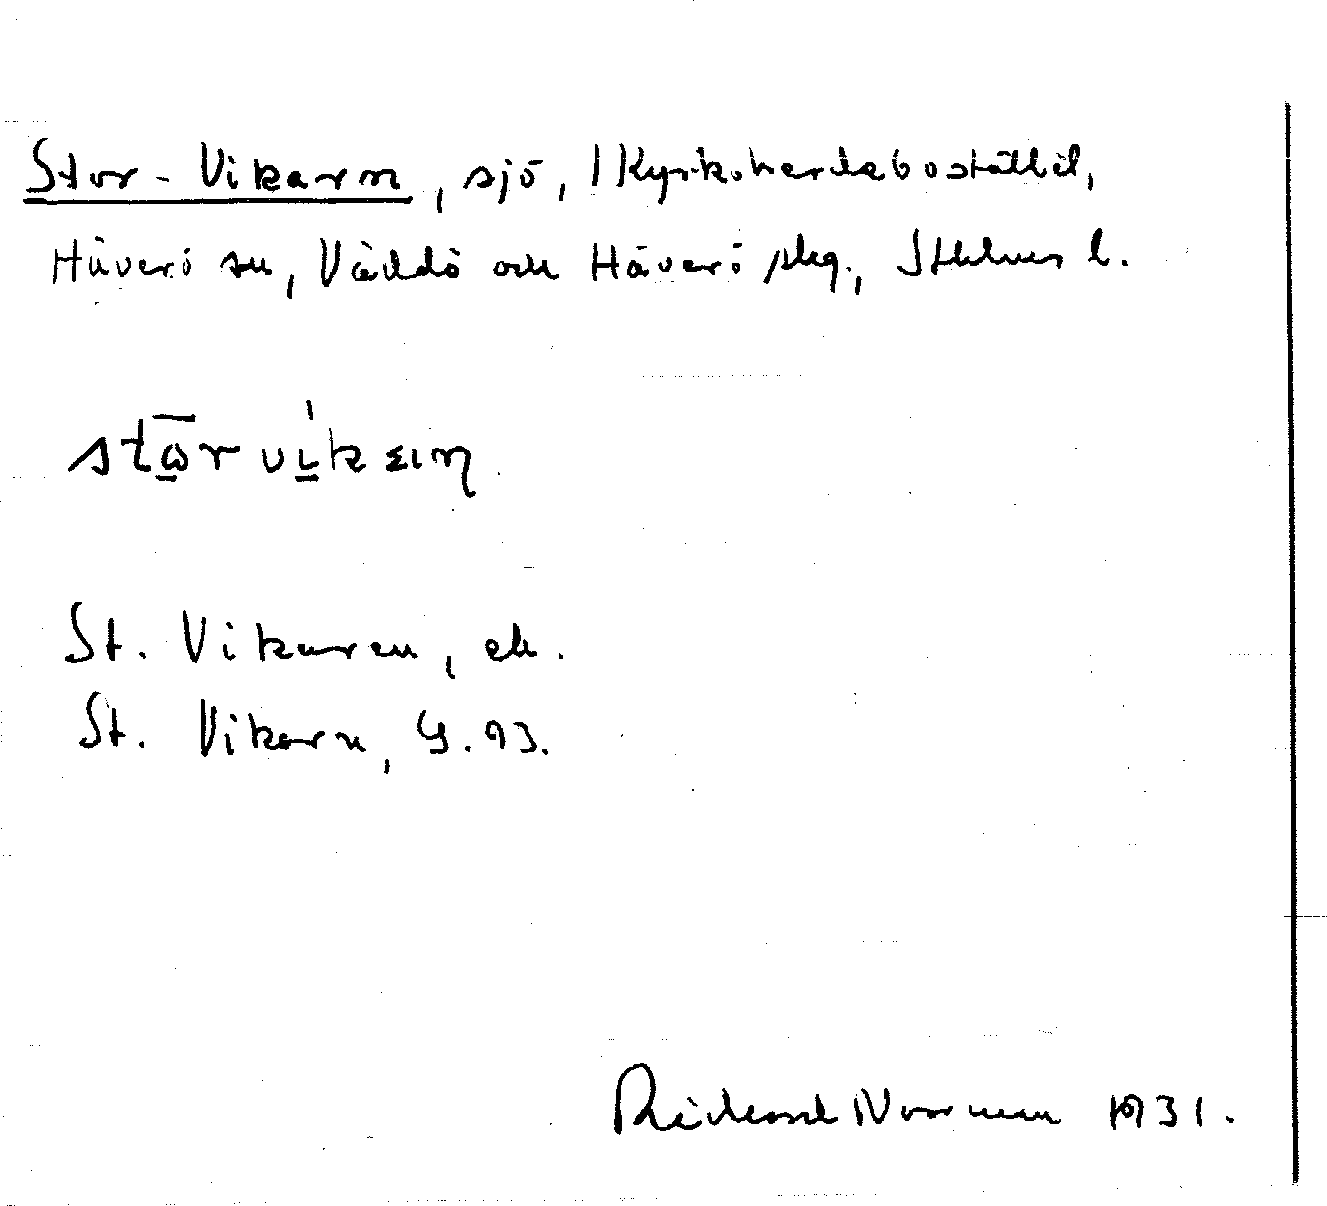 Stor-Vikarn, sjö, 1 Kyrkoherdebostället,
Häverö sn, Väddö och Häverö skg., Sthlms l.
St. Vikaren, ek.
St. Vikarn, G.93.
Rickard Norrman 1931.